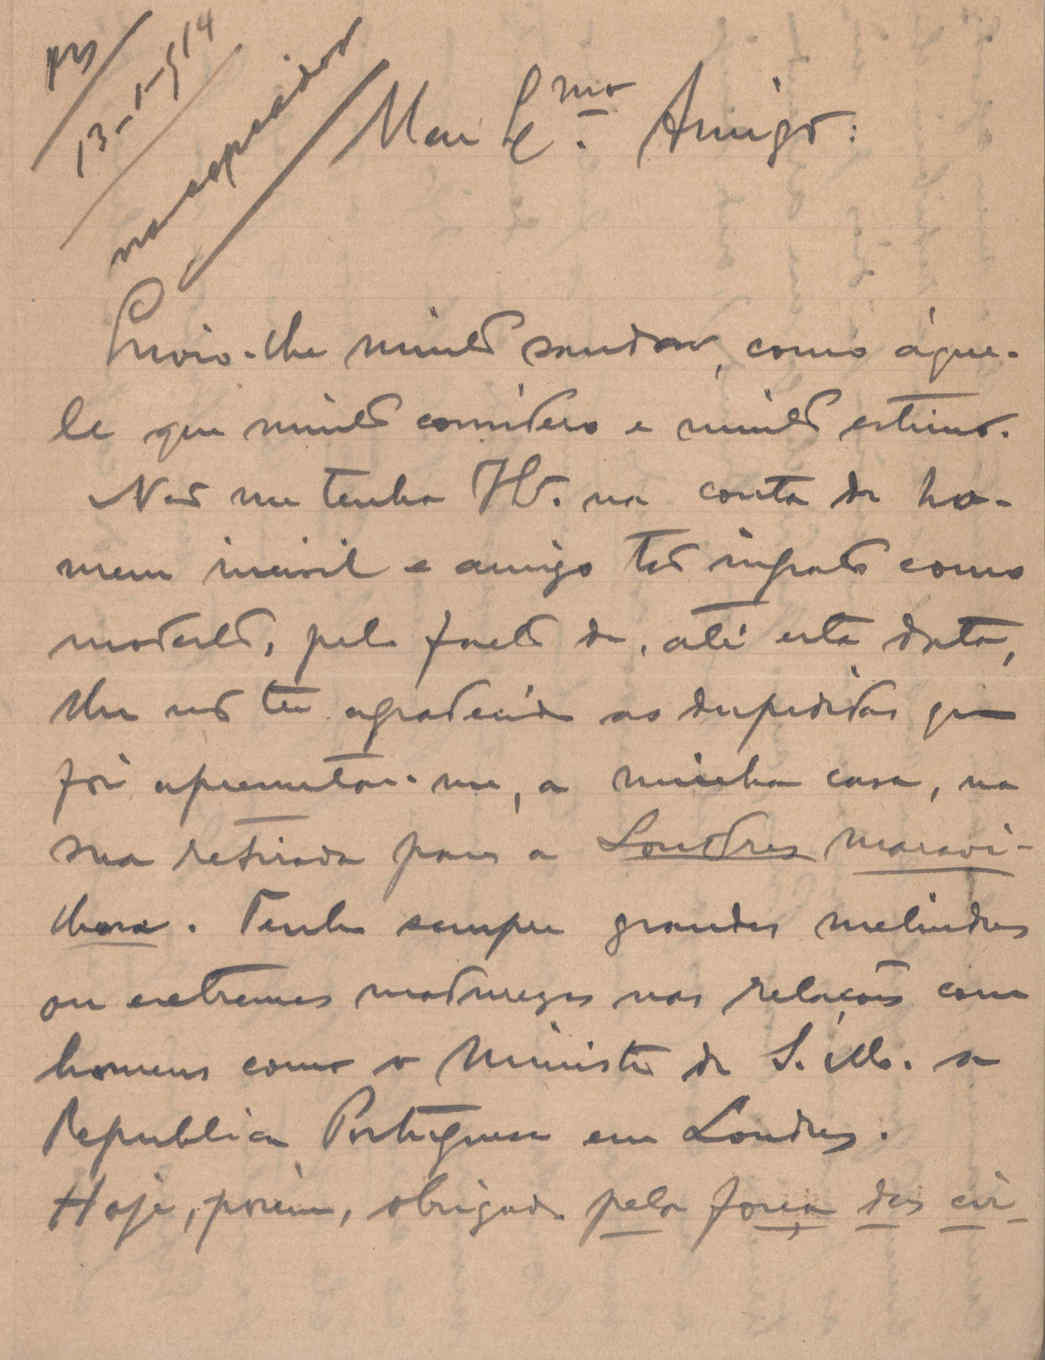 13-1-914
no copiador
Meu Ex.mo Amigo:
Envio-lhe muito saudar, como áque-
le que muito considero e muito estimo.
Não me tenha V. na conta de ho-
mem incivil e amigo tão ingrato como
modesto, pelo facto de, até esta data,
lhe não ter agradecido as despedidas que
foi apresentar-me, a minha casa, na
sua retirada para a Londres maravi-
lhosa. Tenho sempre grandes melindres
ou extremas madurezas nas relações com
homens como o Ministro de S. M. a
Republica Portuguesa em Londres.
Hoje, porém, obrigado pela força das cir-